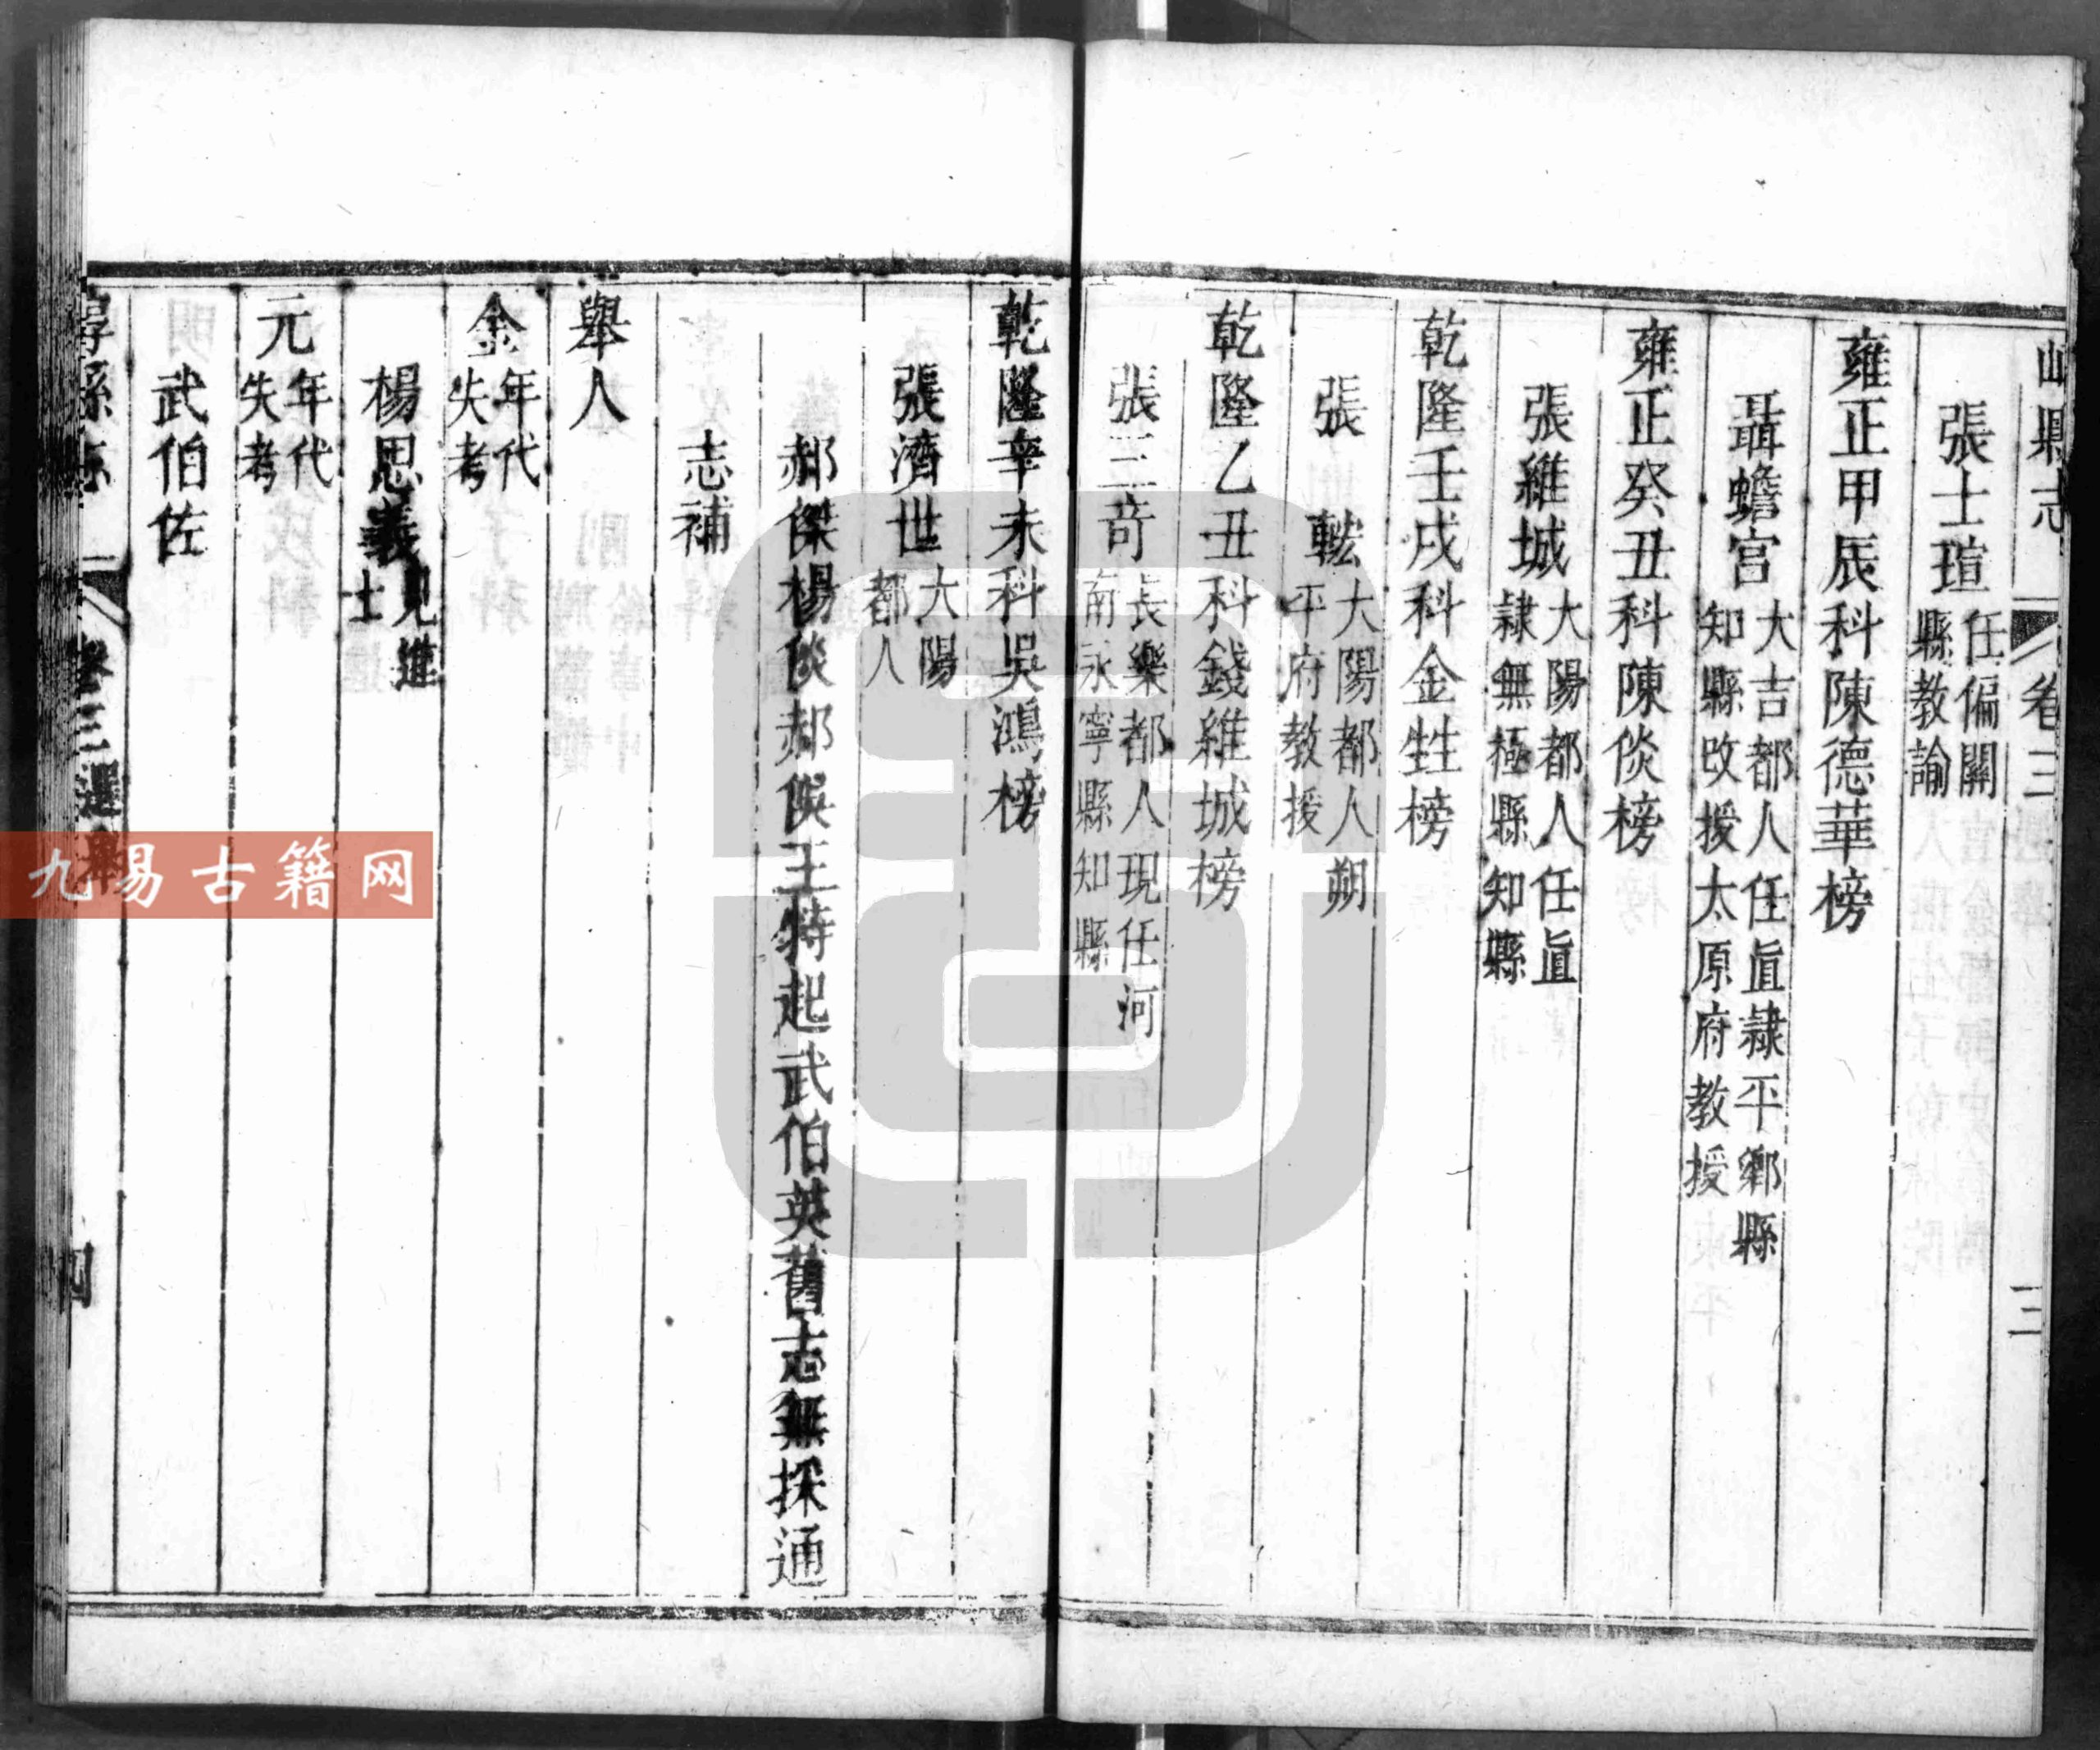 崞縣志 卷三 三
張士瑄 任偏關縣教諭
雍正甲辰科陳德華榜
聶蟾宫 大吉都人任直隸平鄉縣知縣改授太原府教授
雍正癸丑科陳倓榜
張維城 大陽都人任直隸無極縣知縣
乾隆壬戌科金甡榜
張 大陽都人朔平府教授
乾隆乙丑科錢維城榜
張三奇 長樂都人現任河南永寧縣知縣
乾隆辛未科吳鴻榜
張濟世 大陽都人
郝傑楊倓郝俁王特起武伯英舊志無採通
志補
舉人
金 年代失考
楊思義 見進士
元 年代失考
武伯佐
崞縣志 卷三選舉 四
九易古籍网